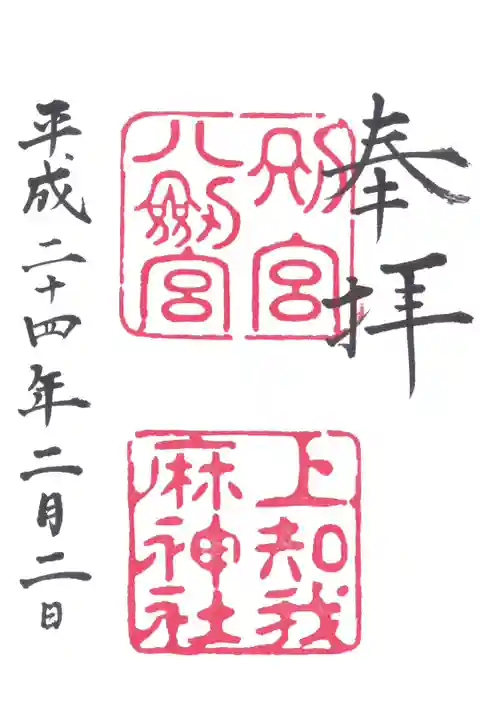 奉拝
別宮
八劔宮
上知我
麻神社
平成二十四年二月二日